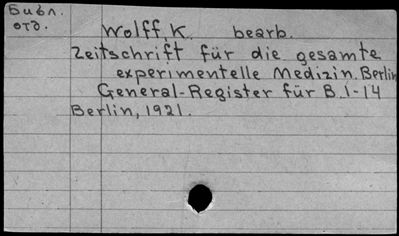 Библ.
отд.
Wolff, K. bearb.
Zeitschrift für die gesamte
experimentelle Medizin. Berlin
General-Register für B. 1-14
Berlin, 1921.